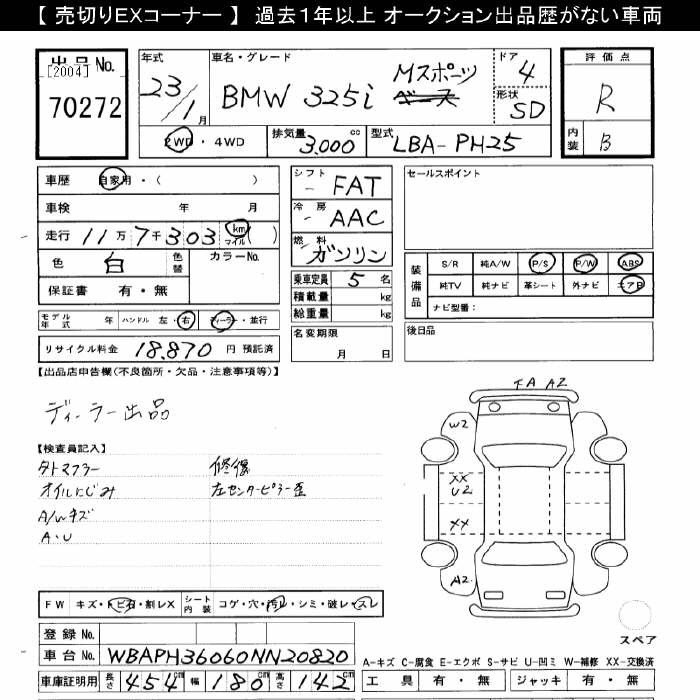 【 売切りEXコーナー 】 過去1年以上 オークション出品歴がない車両
出品No.
[2004]
70272
年式
23/1月
車名・グレード
BMW 325i
Mスポーツ
ベース
ドア
4
形状
SD
評価点
R
内装
B
2WD・4WD
排気量
3,000cc
型式
LBA-PH25
車歴 自家用・( )
車検 年 月
走行 11万7千303 km マイル ( )
色 白 色替 カラーNo.
保証書 有・無
モデル年式 年 ハンドル 左・右 ディーラー・並行
リサイクル料金 18,870 円 預託済
シフト - FAT
冷房 - AAC
燃料 ガソリン
乗車定員 5 名
積載量 kg
総重量 kg
名変期限
月 日
セールスポイント
装備品
S/R 純A/W P/S P/W ABS
純TV 純ナビ 革シート 外ナビ エアB
ナビ型番:
後日品
【出品店申告欄(不良箇所・欠品・注意事項等)】
ディーラー出品
【検査員記入】
タトマフラー
オイルにじみ
A/Wキズ
A・U
修復
左センターピラー歪
FA A2
W2
XX
U2
XX
A2
スペア
FW キズ・トビ石・割レX シート内装 コゲ・穴・汚レ・シミ・破レ・スレ
登録No.
車台No. WBAPH36060NN20820
車庫証明用 長さ 454 幅 180 高さ 142
A-キズ C-腐食 E-エクボ S-サビ U-凹ミ W-補修 XX-交換済
工具 有・無 ジャッキ 有・無